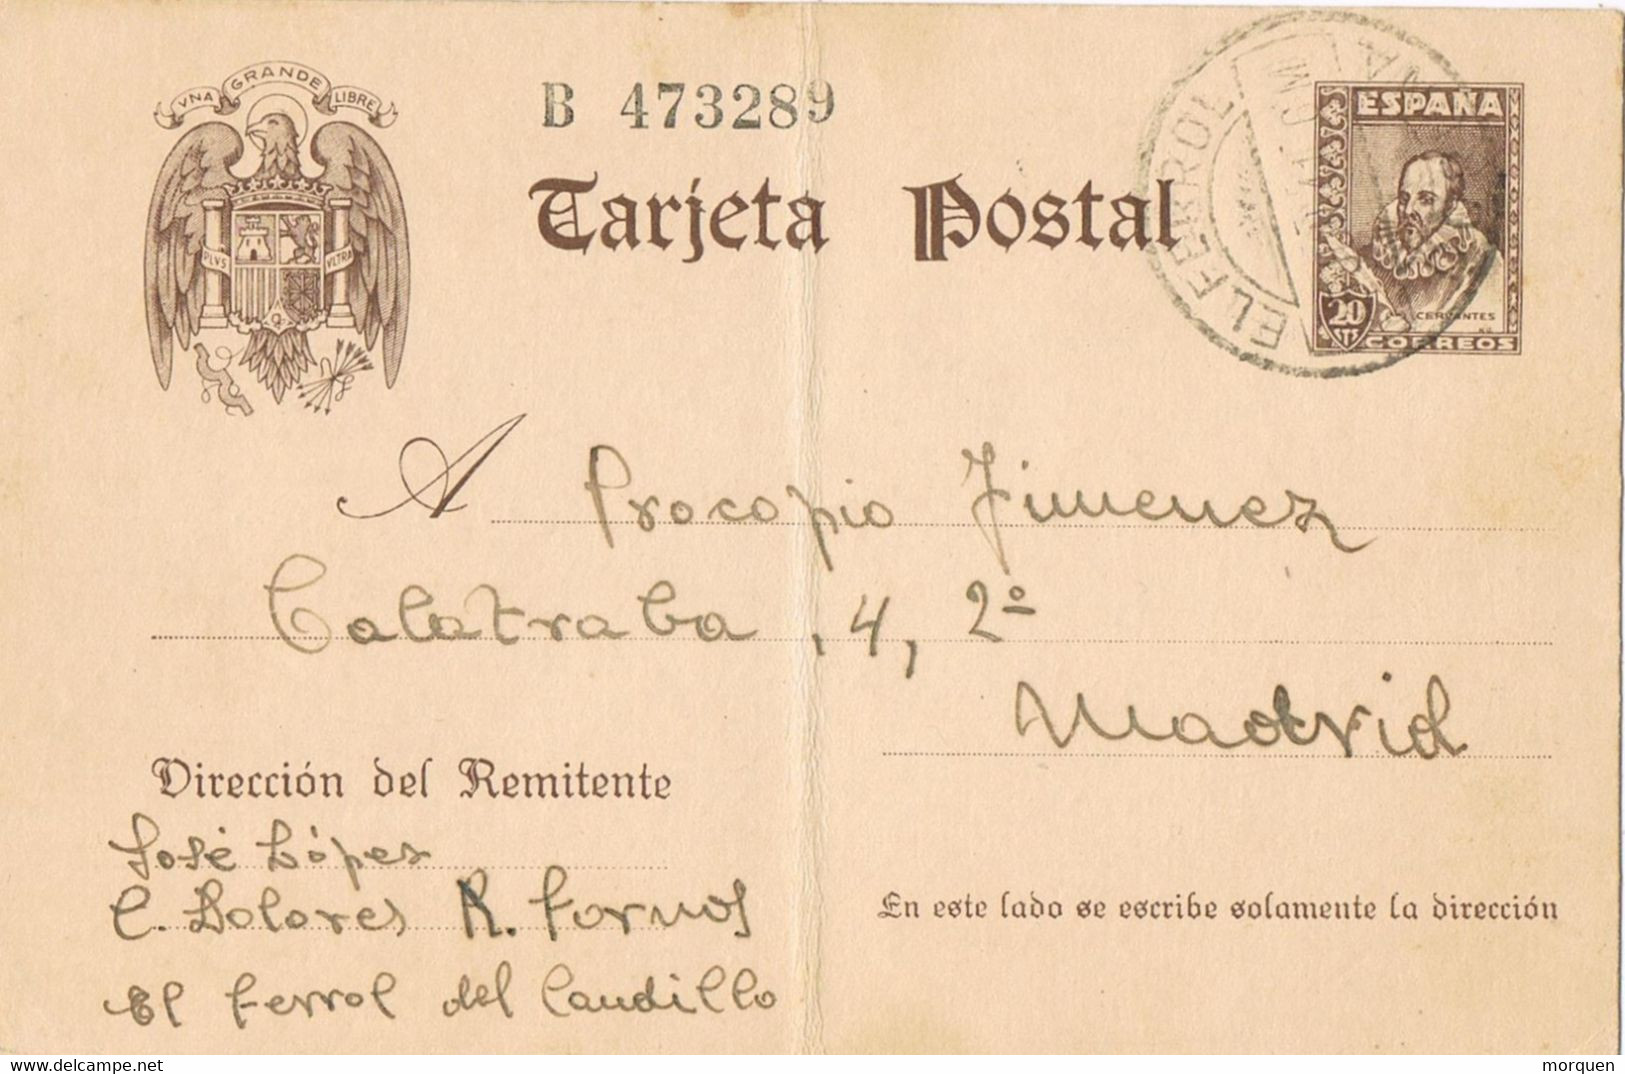 VNA GRANDE LIBRE
B 473289
Tarjeta Postal
PLVS VLTRA
EL FERROL
ESPAÑA
CERVANTES
20 CTS
CORREOS
A Procopio Jimenez
Calatraba, 4, 2º
Madrid
Dirección del Remitente
José Lópes
C. Dolores R. Fornos
El Ferrol del Caudillo
En este lado se escribe solamente la dirección
delcampe.net
morquen